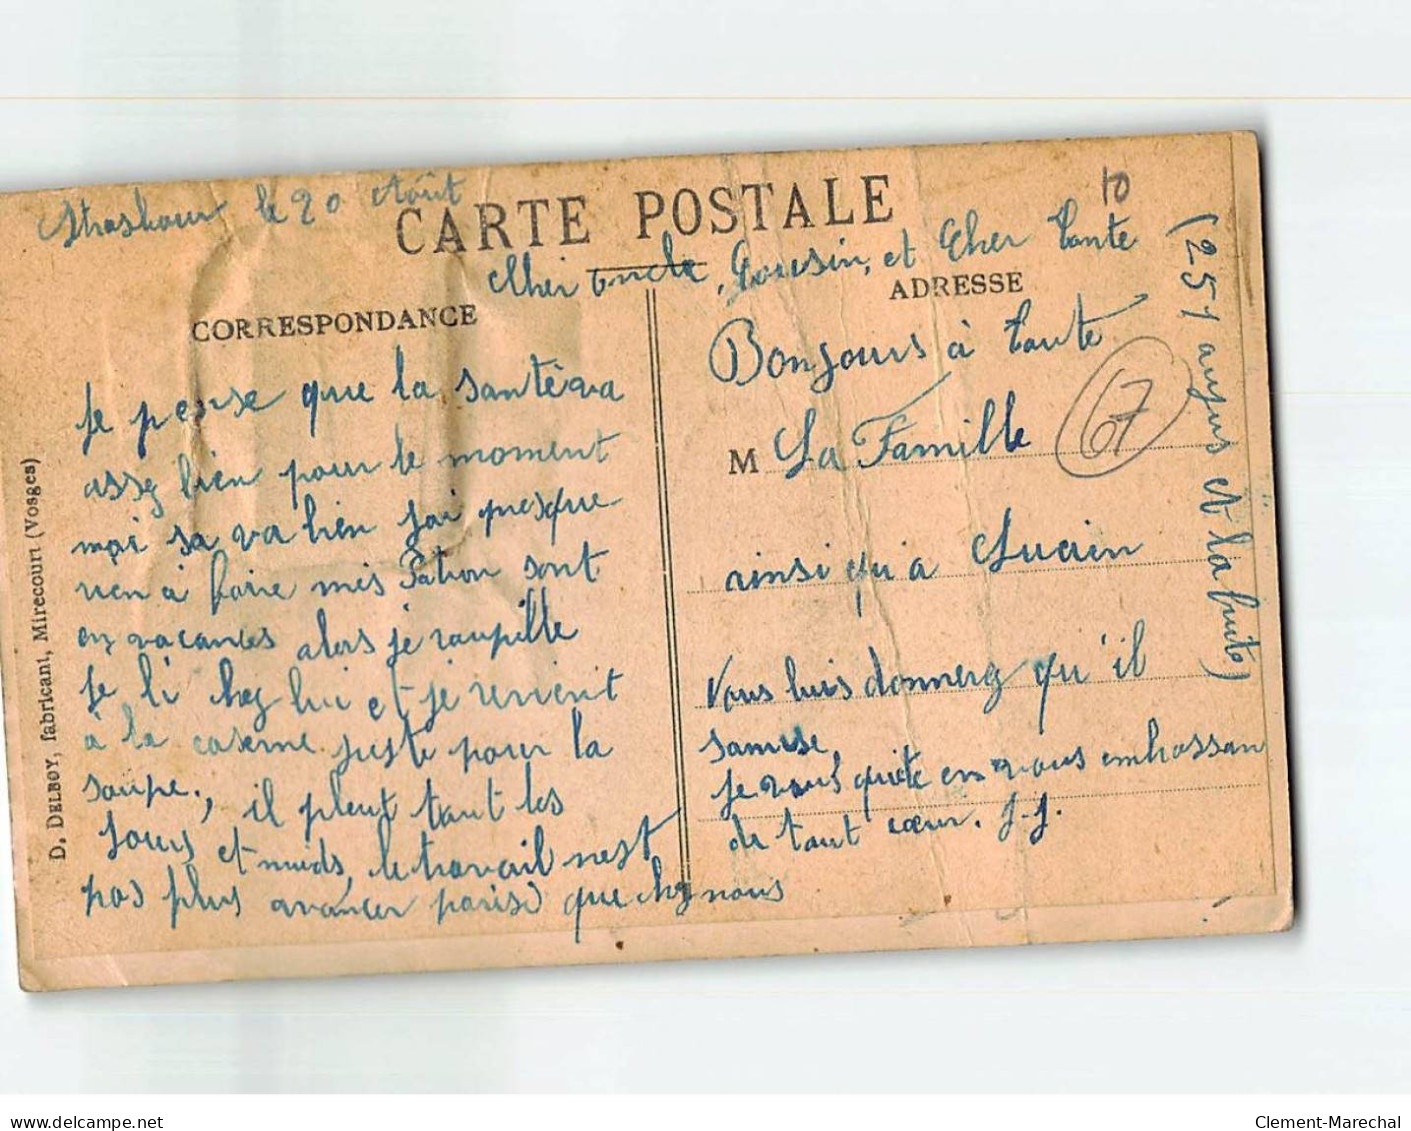 Strasbour le 20 Août
CARTE POSTALE
10
Cher Oncle, Cousin, et Cher tante
CORRESPONDANCE
ADRESSE
Je pense que la santé va
assez bien pour le moment
moi sa va bien jai presque
rien à faire mes Patron sont
en vacances alors je roupille
je li chez lui et je revient
à la caserne juste pour la
soupe, il pleut tout les
jours et nuids, le travail nest
pas plus avancer parisi que chez nous
Bonjours à toute
M La Famille
67
ainsi qu'a Lucien
Vous luis donnerez qu'il
samuse,
je vous quite en vous embrassan
de tout cœur. J-J.
(251 aujus et la fuite)
D. DELBOY, fabricant, Mirecourt (Vosges)
Clement-Marechal